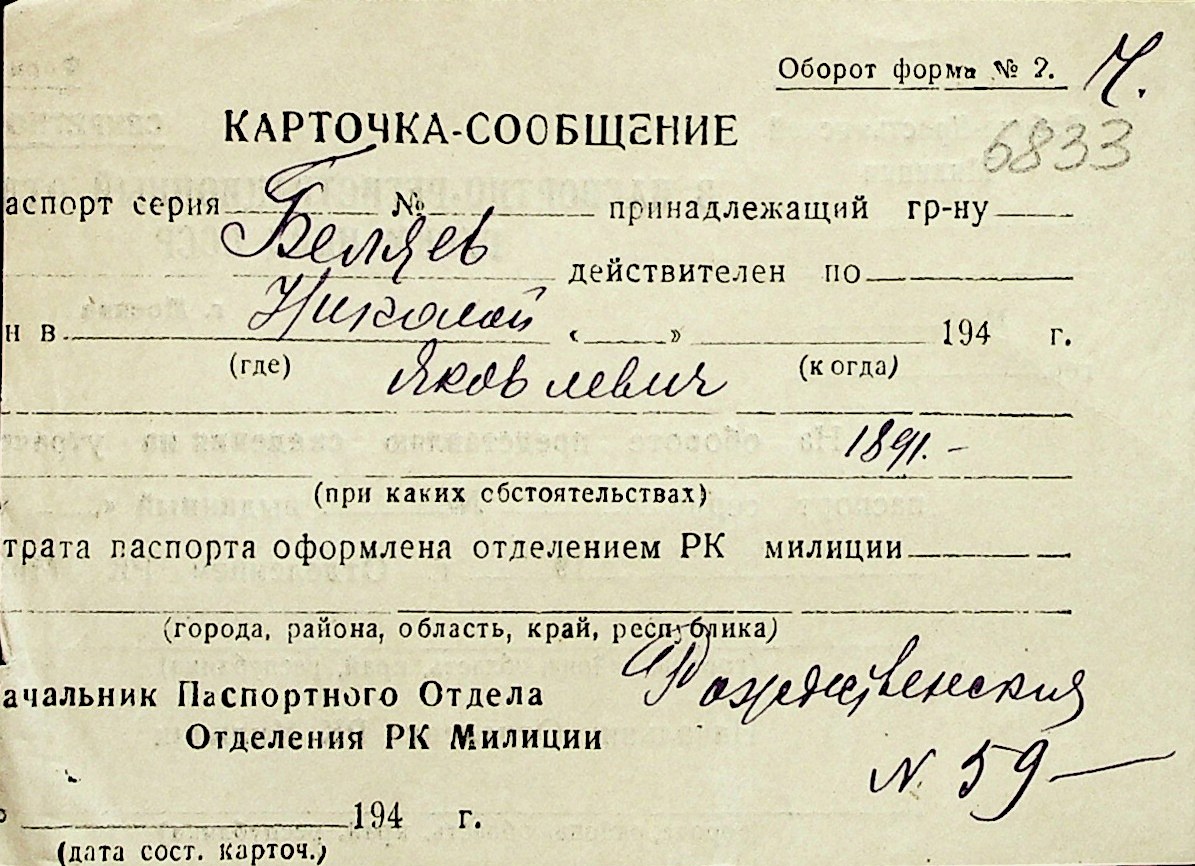 Оборот форма № 2. Ч.
КАРТОЧКА-СООБЩЕНИЕ
6833
аспорт серия № принадлежащий гр-ну
Беляев
действителен по
Николай
н в « » 194 г.
(где) Яковлевич (когда)
1891. -
(при каких обстоятельствах)
трата паспорта оформлена отделением РК милиции
(города, района, область, край, республика)
ачальник Паспортного Отдела Рождественский
Отделения РК Милиции
N. 59
194 г.
(дата сост. карточ.)